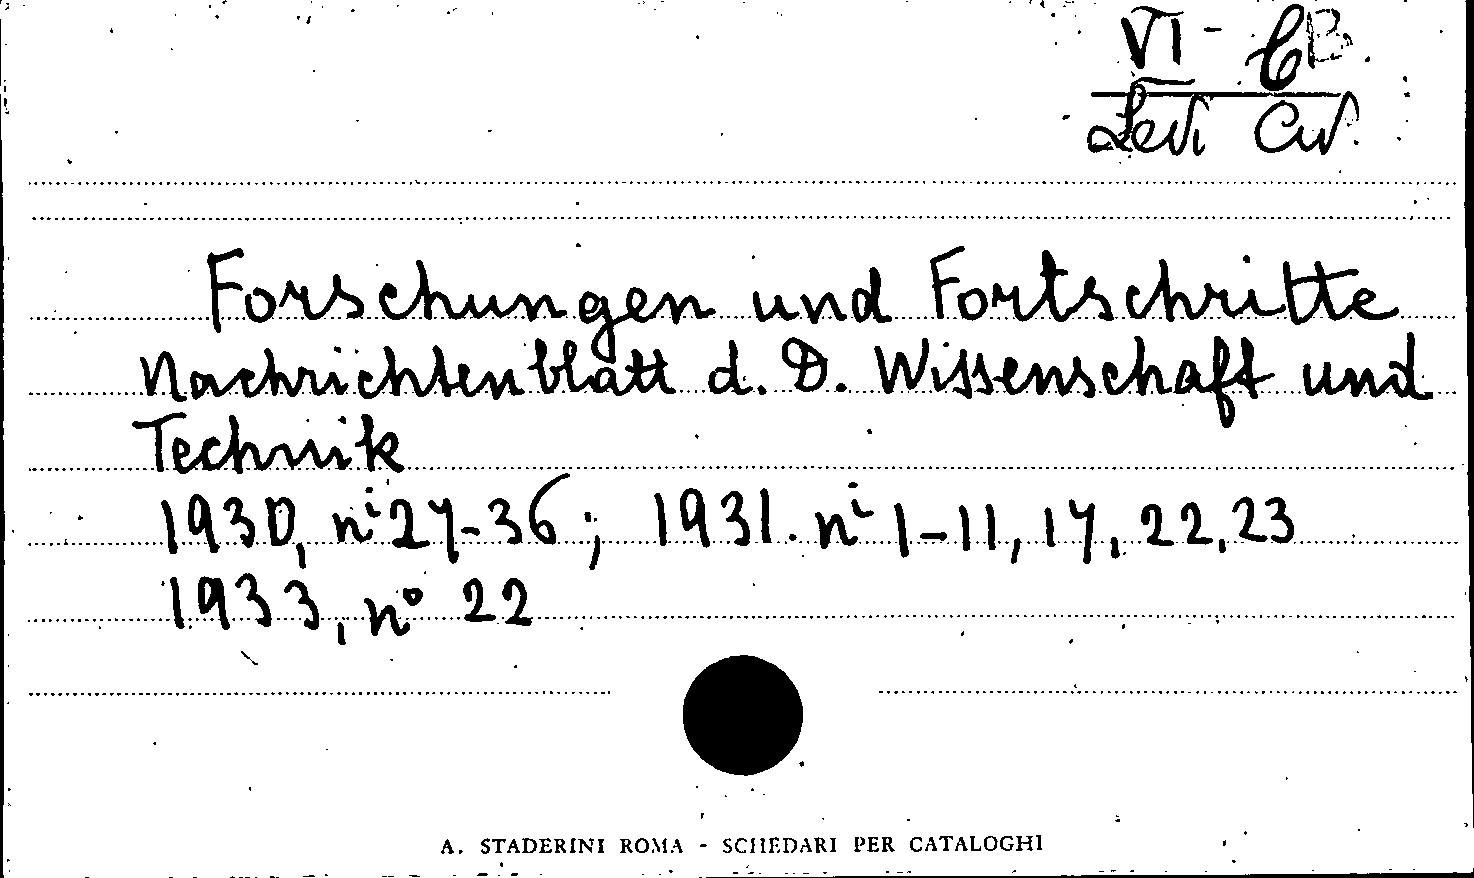 VI - B
Levi Civ.
Forschungen und Fortschritte
Nachrichtenblatt d. D. Wissenschaft und
Technik
1930, nⁱ 27-36; 1931. nⁱ 1-11, 17, 22, 23
1933, n° 22
A. STADERINI ROMA - SCHEDARI PER CATALOGHI